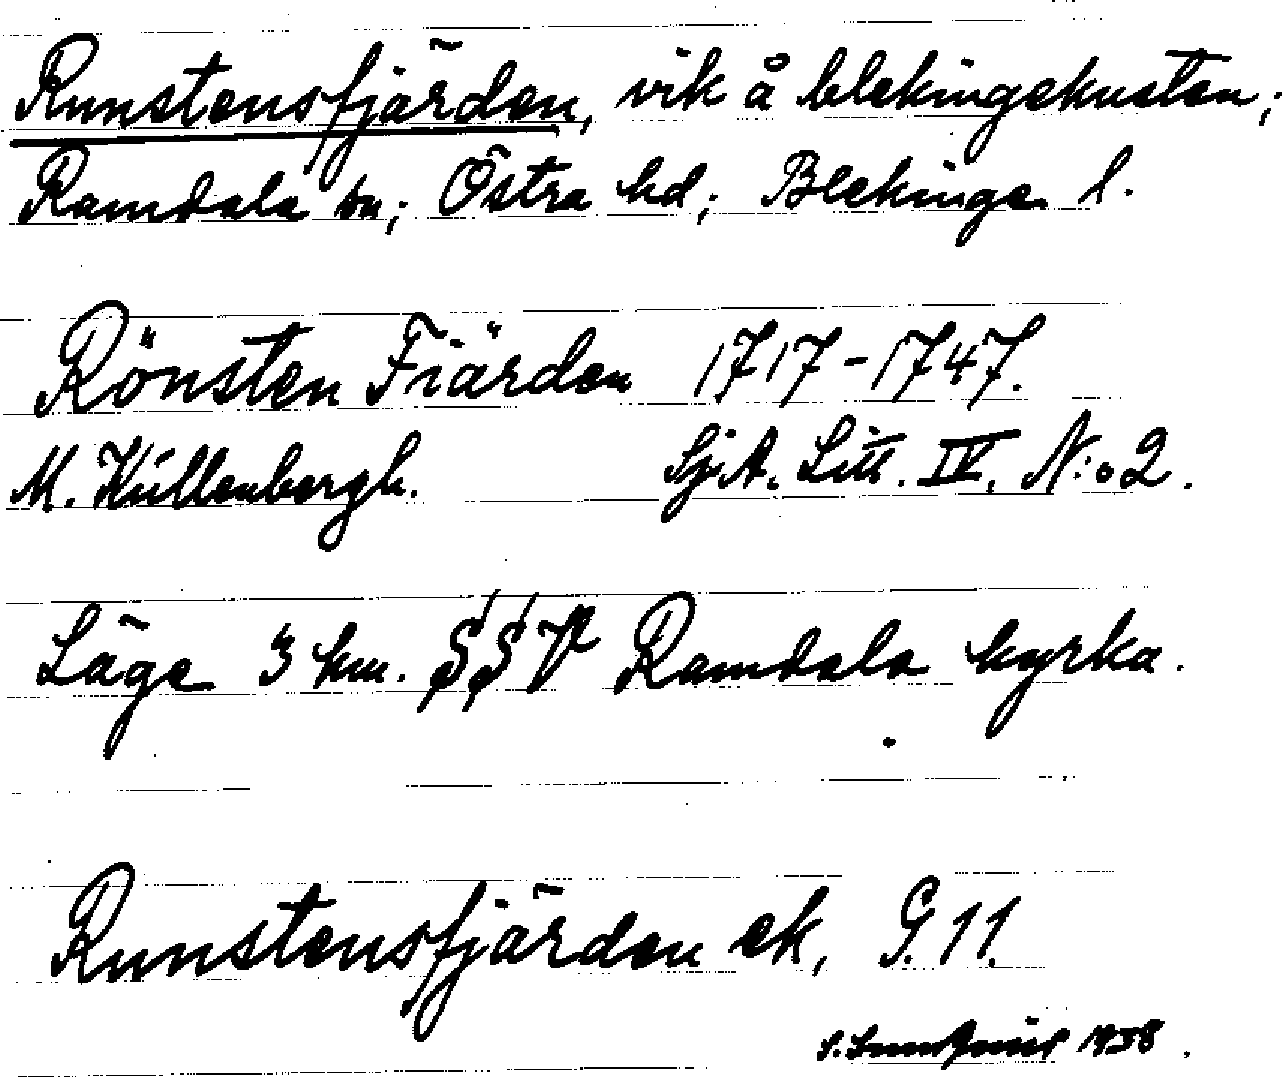 Runstensfjärden, vik å blekingekusten;
Ramdala sn; Östra hd; Blekinge l.
Rönsten Fiärden 1717-1747.
M. Küllenbergh. Sj.A. Litt. IV. N:o 2.
Läge 3 km. SSV Ramdala kyrka.
Runstensfjärden ek, G. 11.
S. 1938.